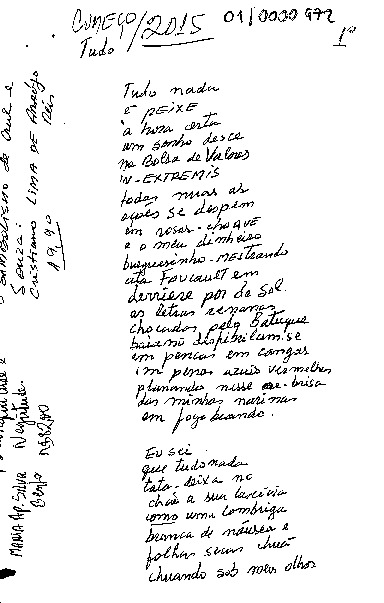 COMEÇO/2015
01/0000 972
Tudo
1º
Tudo nada
é PEIXE
à hora certa
um sonho desce
na Bolsa de Valores
IN-EXTREMIS
todas nuas as
ações se despem
em rosas-choque
e o meu dinheiro
burguesinho-mestrando
cita Foucault em
derrière por de Sol.
as letras
chocadas pelo Batuque
em pencas em cangas
em penas azuis vermelhas
planando nesse brisa
das minhas narinas
em fogo brando.
Eu sei
que tudo nada
tata-deixa no
chão a sua lascívia
como uma lombriga
branca de náusea e
folhas secas
chuando sob meus olhos
Simbolismo de Cruz e
Souza:
Cristiano LIMA DE Araújo
Reis
A 9,90
MARIA AP. SILVA
Negritude